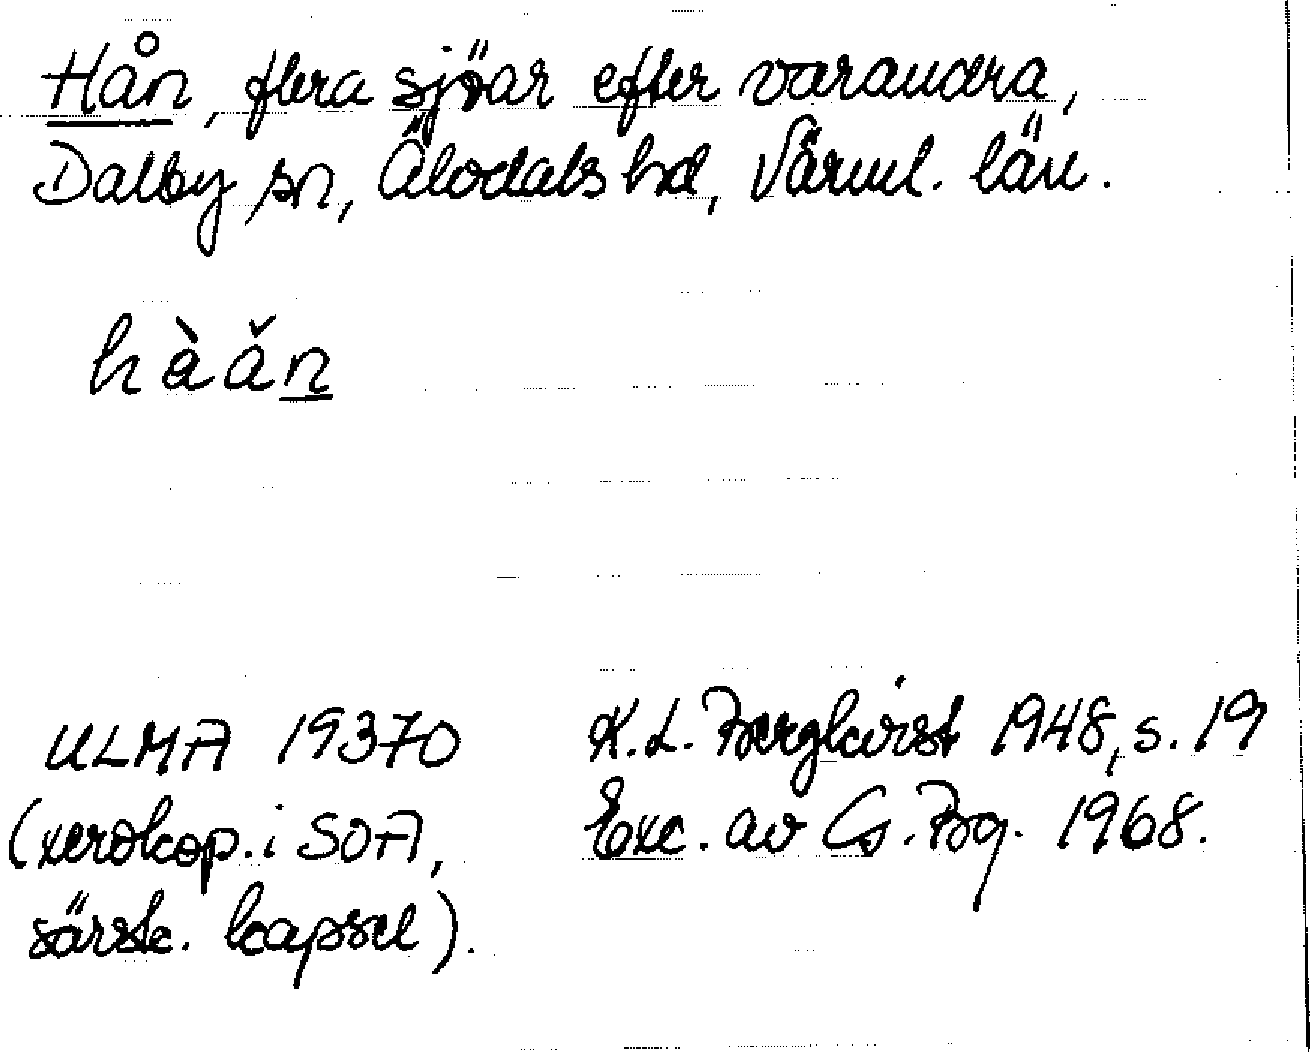 Hån, flera sjöar efter varandra,
Dalby sn, Älvdals hd, Värml. län.
hàǎn
ULMA 19370 K.L. Bergkvist 1948, s. 19
(xerokop. i SOA, Exc. av G. Bg. 1968.
särsk. kapsel).